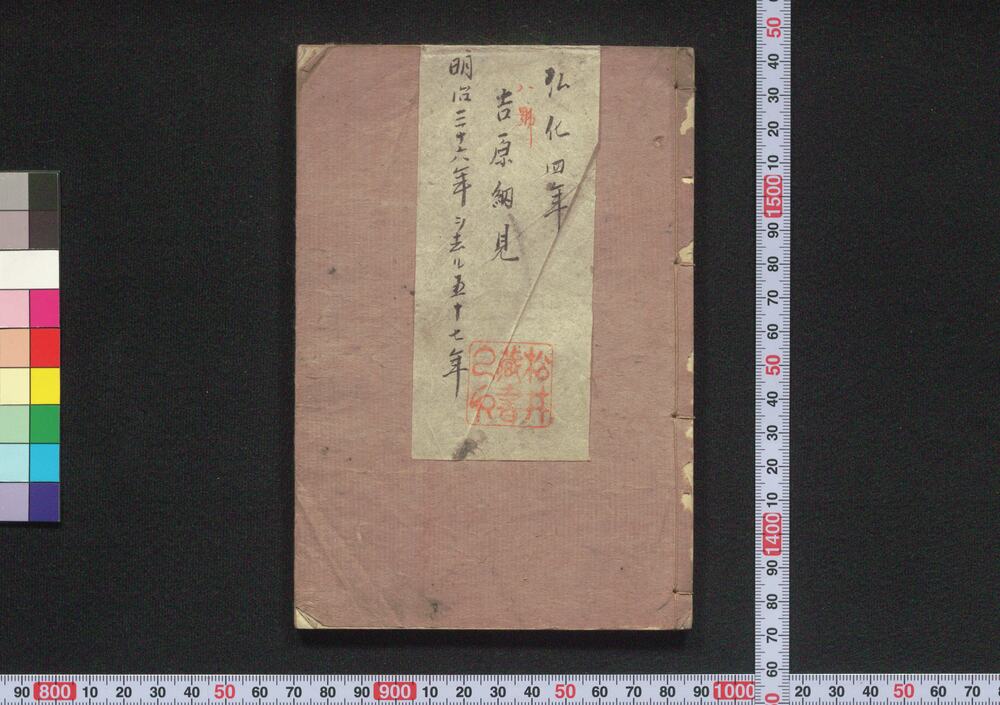 弘化四年
八號
吉原細見
明治三十六年
シ志ル五十七年
松井
藏書
之印
50
40
30
20
10
1500
90
80
70
60
50
40
30
20
10
1400
90
80
70
60
90 800 10 20 30 40 50 60 70 80 90 900 10 20 30 40 50 60 70 80 90 1000 10 20 30 40 50 60 70